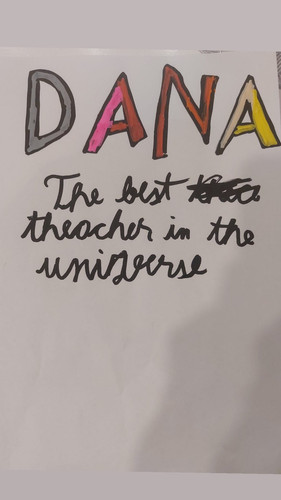 DANA
The best
theacher in the
universe